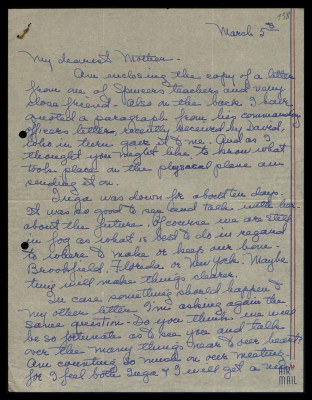 138
March 5th
My dearest Morten -
Am enclosing the copy of a letter
from one of Spencers teachers and very
close friend - Also on the back I have
quoted a paragraph from his commanding
officers letter, recently received by David,
who in turn gave it to me. And as I
thought you might like to know what
took place on the physical plane am
sending it on.
Inga was down for about ten days.
It was so good to see and talk with her
about the future. Of course we are still
in fog as what is best to do in regard
to where to make or keep our home -
Brookfield, Florida or New York. Maybe
time will make things clearer.
In case something should happen to
my other letter I'm asking again the
same question - Do you think we will
be so fortunate as to see you and talk
over the many things near to our hearts
Am counting so much on our meeting -
for I feel both Inga & I will get a new
AIR
MAIL